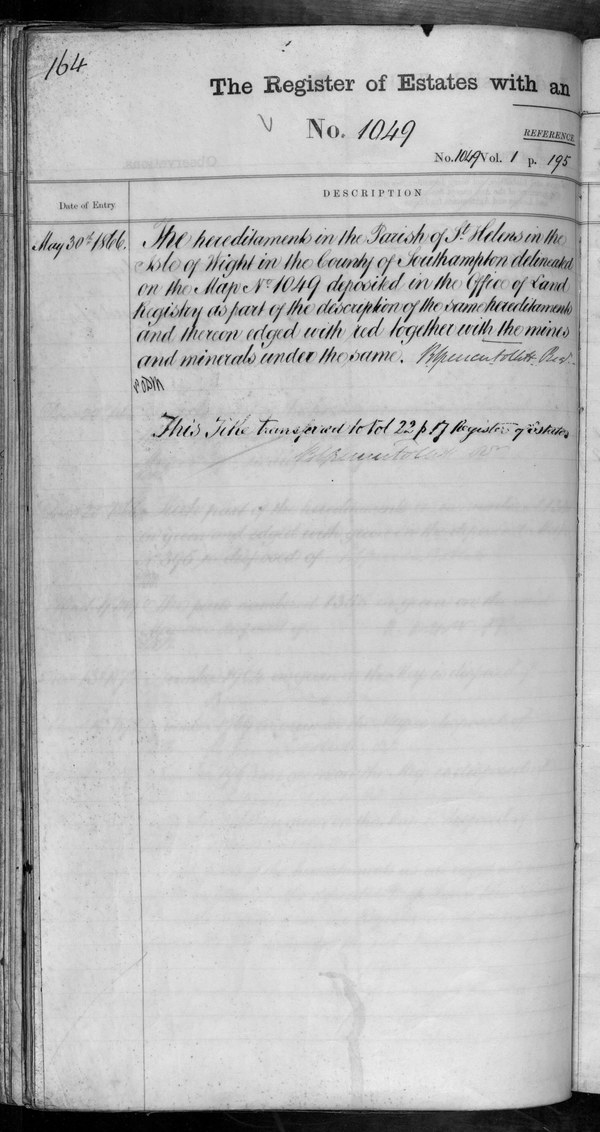 164
The Register of Estates with an
No. 1049
REFERENCE
No. 1049 Vol. 1 p. 195
Date of Entry.
DESCRIPTION
May 30th 1866.
The hereditaments in the Parish of St. Helens in the
Isle of Wight in the County of Southampton delineated
on the Map No. 1049 deposited in the Office of Land
Registry as part of the description of the same hereditaments
and thereon edged with red together with the mines
and minerals under the same.
This Title transferred to Vol 22 p 17 Register of Estates